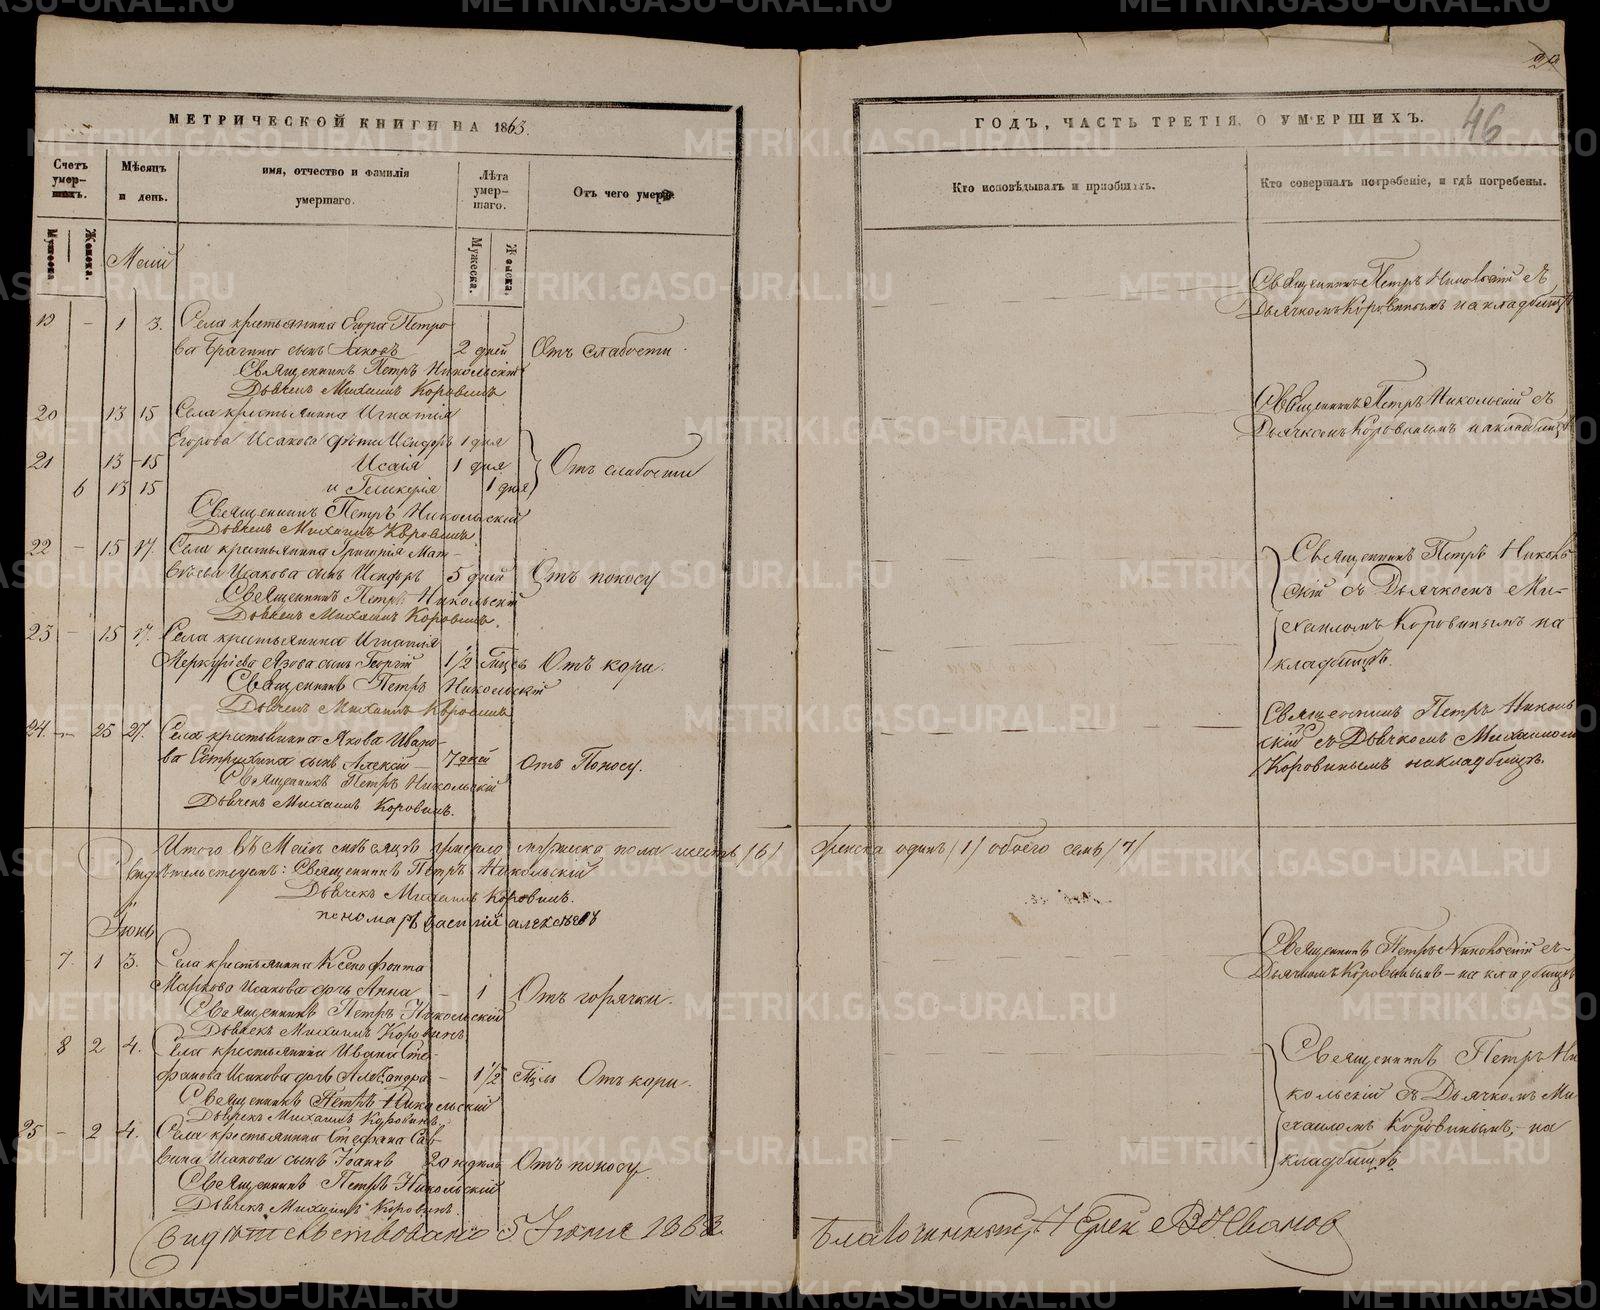 МЕТРИЧЕСКОЙ КНИГИ НА 1863.
Счетъ умерших.
Мѣсяцъ и день.
имя, отчество и фамилія умершаго.
Лѣта умершаго.
Отъ чего умеръ.
Мужеска
Женска.
Мужеска.
Женска.
19 - 1 3. Села крестьянина Егора Петро
ва Брагина сынъ Яковъ 2 дней Отъ слабости.
Священникъ Петръ Никольскій
Дьячекъ Михаилъ Коровинъ
20 13 15 Села крестьянина Игнатія
Егорова Исакова дѣти Исидоръ 1 дня
21 13 - 15 Исаія 1 дня Отъ слабости
6 13 15 и Гликерія 1 дня
Священникъ Петръ Никольскій
Дьячекъ Михаилъ Коровинъ
22 - 15 17. Села крестьянина Григорія Мат-
вѣева Исакова сынъ Исидоръ 5 дней Отъ поносу
Священникъ Петръ Никольскій
Дьячекъ Михаилъ Коровинъ.
23 - 15 17. Села крестьянина Игнатія
Меркурieва сынъ Георгій 1/2 Отъ кори.
Священникъ Петръ Никольскій
Дьячекъ Михаилъ Коровинъ
24. - 25 27. Села крестьянина Якова Ивано-
ва сынъ Алексій - 7 дней Отъ Поносу.
Священникъ Петръ Никольскій
Дьячекъ Михаилъ Коровинъ.
Итого въ Маѣ мѣсяцѣ умерло мужеска пола шесть /6/
Свидѣтельствуемъ: Священникъ Петръ Никольскій
Дьячекъ Михаилъ Коровинъ.
пономарь василий алексеевъ
Іюнь
7. 1 3. Села крестьянина Ксенофонта
Маркова Исакова дочь Анна - 1 Отъ горячки.
Священникъ Петръ Никольскій
Дьячекъ Михаилъ Коровинъ
8 2 4. Села крестьянина Ивана Сте-
фанова Исакова дочь Александра - 1 1/2 Отъ кори.
Священникъ Петръ Никольскій
Дьячекъ Михаилъ Коровинъ
25 - 2 4. Села крестьянина Стефана Сав-
вина Исакова сынъ Іоаннъ 20 недѣль Отъ поносу
Священникъ Петръ Никольскій
Дьячекъ Михаилъ Коровинъ.
5 Іюня 1863.
ГОДЪ, ЧАСТЬ ТРЕТІЯ, О УМЕРШИХЪ.
46
Кто исповѣдывалъ и пріобщалъ.
Кто совершалъ погребеніе, и гдѣ погребены.
Священникъ Петръ Никольскій съ
Дьячкомъ Коровинымъ на кладбищѣ
Священникъ Петръ Никольскій съ
Дьячкомъ Коровинымъ на кладбищѣ
Священникъ Петръ Николь
скій съ Дьячкомъ Ми-
хаиломъ Коровинымъ на
кладбищѣ.
Священникъ Петръ Николь
скій съ Дьячкомъ Михаиломъ
Коровинымъ на кладбищѣ.
женска одинъ /1/ обоего семь /7/
Священникъ Петръ Никольскій съ
Дьячкомъ Коровинымъ - на кладбищѣ
Священникъ Петръ Ни
кольскій съ Дьячкомъ Ми
хаиломъ Коровинымъ, на
кладбищѣ.
METRIKI.GASO-URAL.RU